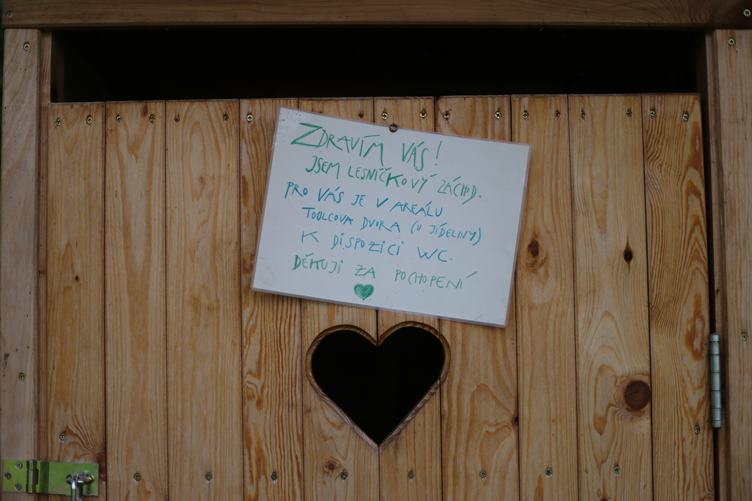 ZDRAVÍM VÁS!
JSEM LESNÍČKOVÝ ZÁCHOD.
PRO VÁS JE V AREÁLU
TOULCOVA DVORA (U JÍDELNY)
K DISPOZICI WC.
DĚKUJI ZA POCHOPENÍ